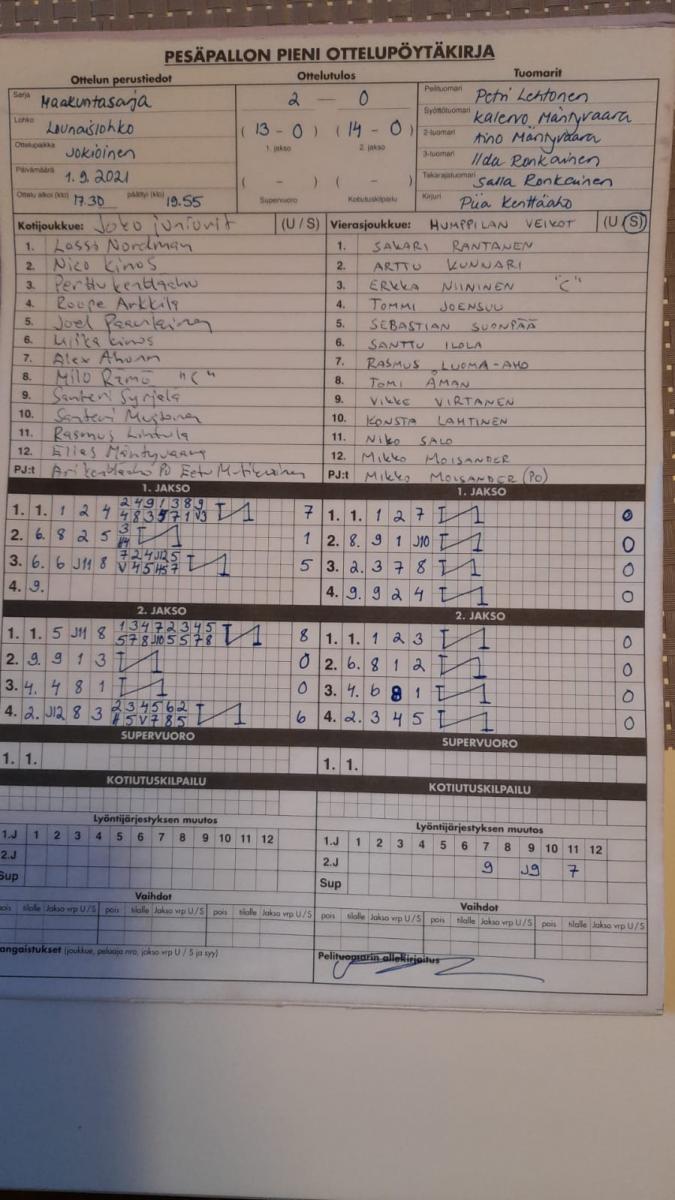 PESÄPALLON PIENI OTTELUPÖYTÄKIRJA
Ottelun perustiedot
Sarja Maakuntasarja
Lohko Lounaislohko
Ottelupaikka Jokioinen
Päivämäärä 1.9.2021
Ottelu alkoi (klo) 17.30 päättyi (klo) 19.55
Ottelutulos
2 – 0
(13 – 0) (14 – 0)
1. jakso 2. jakso
( – ) ( – )
Supervuoro Kotiutuskilpailu
Tuomarit
Pelituomari Petri Lehtonen
Syöttötuomari Kalervo Mäntyvaara
2-tuomari Aino Mäntyvaara
3-tuomari Ilda Ronkainen
Takarajatuomari Salla Ronkainen
Kirjuri Piia Kenttäaho
Kotijoukkue: Joko juniorit (U / S)
1. Lasso Nordman
2. Nico Kinos
3. Perttu Kenttäaho
4. Roope Arkkila
5. Joel
6. Kinos
7. Alex Ahonen
8. Milo Rämö "C"
9. Santeri Syrjälä
10. Santeri
11. Rasmus Lintula
12. Elias Mäntyvaara
PJ:t Ari Kenttäaho PJ Eetu
Vierasjoukkue: HUMPPILAN VEIKOT (U / S)
1. SAKARI RANTANEN
2. ARTTU KUNNARI
3. ERKKA NIININEN "C"
4. TOMMI JOENSUU
5. SEBASTIAN SUONPÄÄ
6. SANTTU ILOLA
7. RASMUS LUOMA-AHO
8. TOMI ÅMAN
9. VIKKE VIRTANEN
10. KONSTA LAHTINEN
11. NIKO SALO
12. MIKKO MOISANDER
PJ:t MIKKO MOISANDER (PO)
1. JAKSO
1. 1. 1 2 4 2 4 9 1 3 8 9 7
4 8 3 5 7 1 V3
2. 6. 8 2 5 3 1
3. 6. 6 J11 8 7 2 4 J12 5 5
V 4 5 H5 7
4. 9.
1. JAKSO
1. 1. 1 2 7 0
2. 8. 9 1 J10 0
3. 2. 3 7 8 0
4. 9. 9 2 4 0
2. JAKSO
1. 1. 5 J11 8 1 3 4 7 2 3 4 5 8
5 7 8 J10 5 5 7 8
2. 9. 9 1 3 0
3. 4. 4 8 1 0
4. 2. J12 8 3 2 3 4 5 6 2 6
5 V 7 8 5
2. JAKSO
1. 1. 1 2 3 0
2. 6. 8 1 2 0
3. 4. 6 8 1 0
4. 2. 3 4 5 0
SUPERVUORO
1. 1.
SUPERVUORO
1. 1.
KOTIUTUSKILPAILU
KOTIUTUSKILPAILU
Lyöntijärjestyksen muutos
1.J 1 2 3 4 5 6 7 8 9 10 11 12
2.J
Sup
Lyöntijärjestyksen muutos
1.J 1 2 3 4 5 6 7 8 9 10 11 12
2.J 9 J9 7
Sup
Vaihdot
pois tilalle Jakso vrp U / S pois tilalle Jakso vrp U / S pois tilalle Jakso vrp U / S
Vaihdot
pois tilalle Jakso vrp U / S pois tilalle Jakso vrp U / S pois tilalle Jakso vrp U / S
angaistukset (joukkue, pelaaja nro, jakso vrp U / S ja syy)
Pelituomarin allekirjoitus